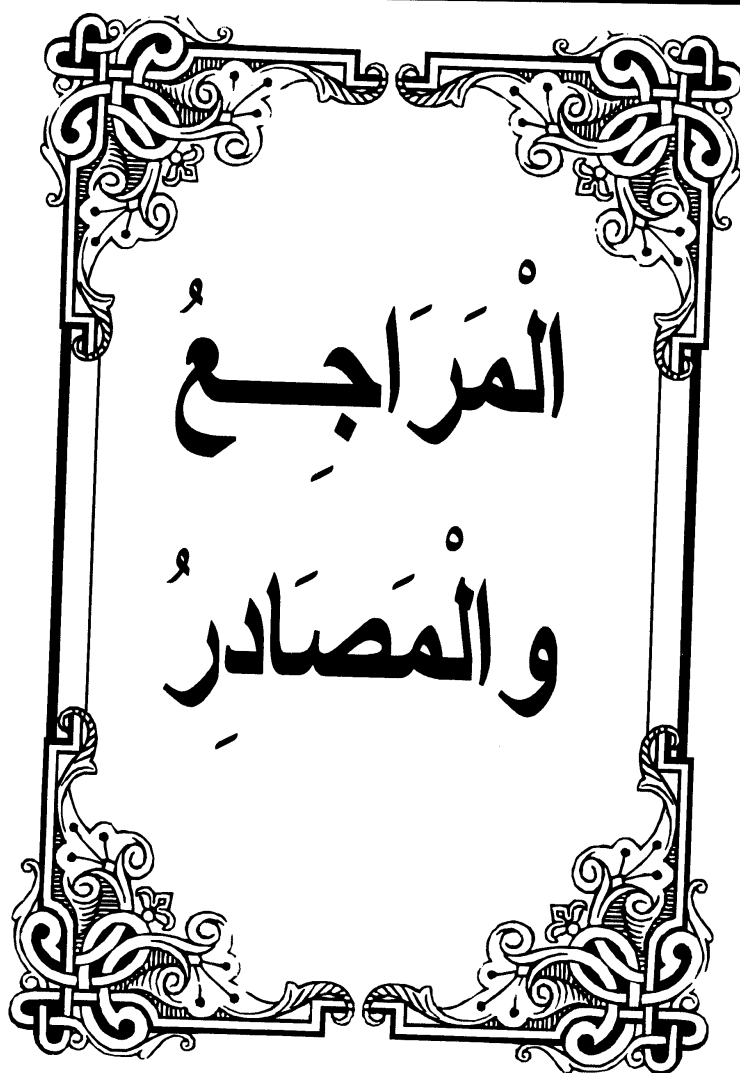 الْمَرَاجِعُ
والْمَصَادِرُ